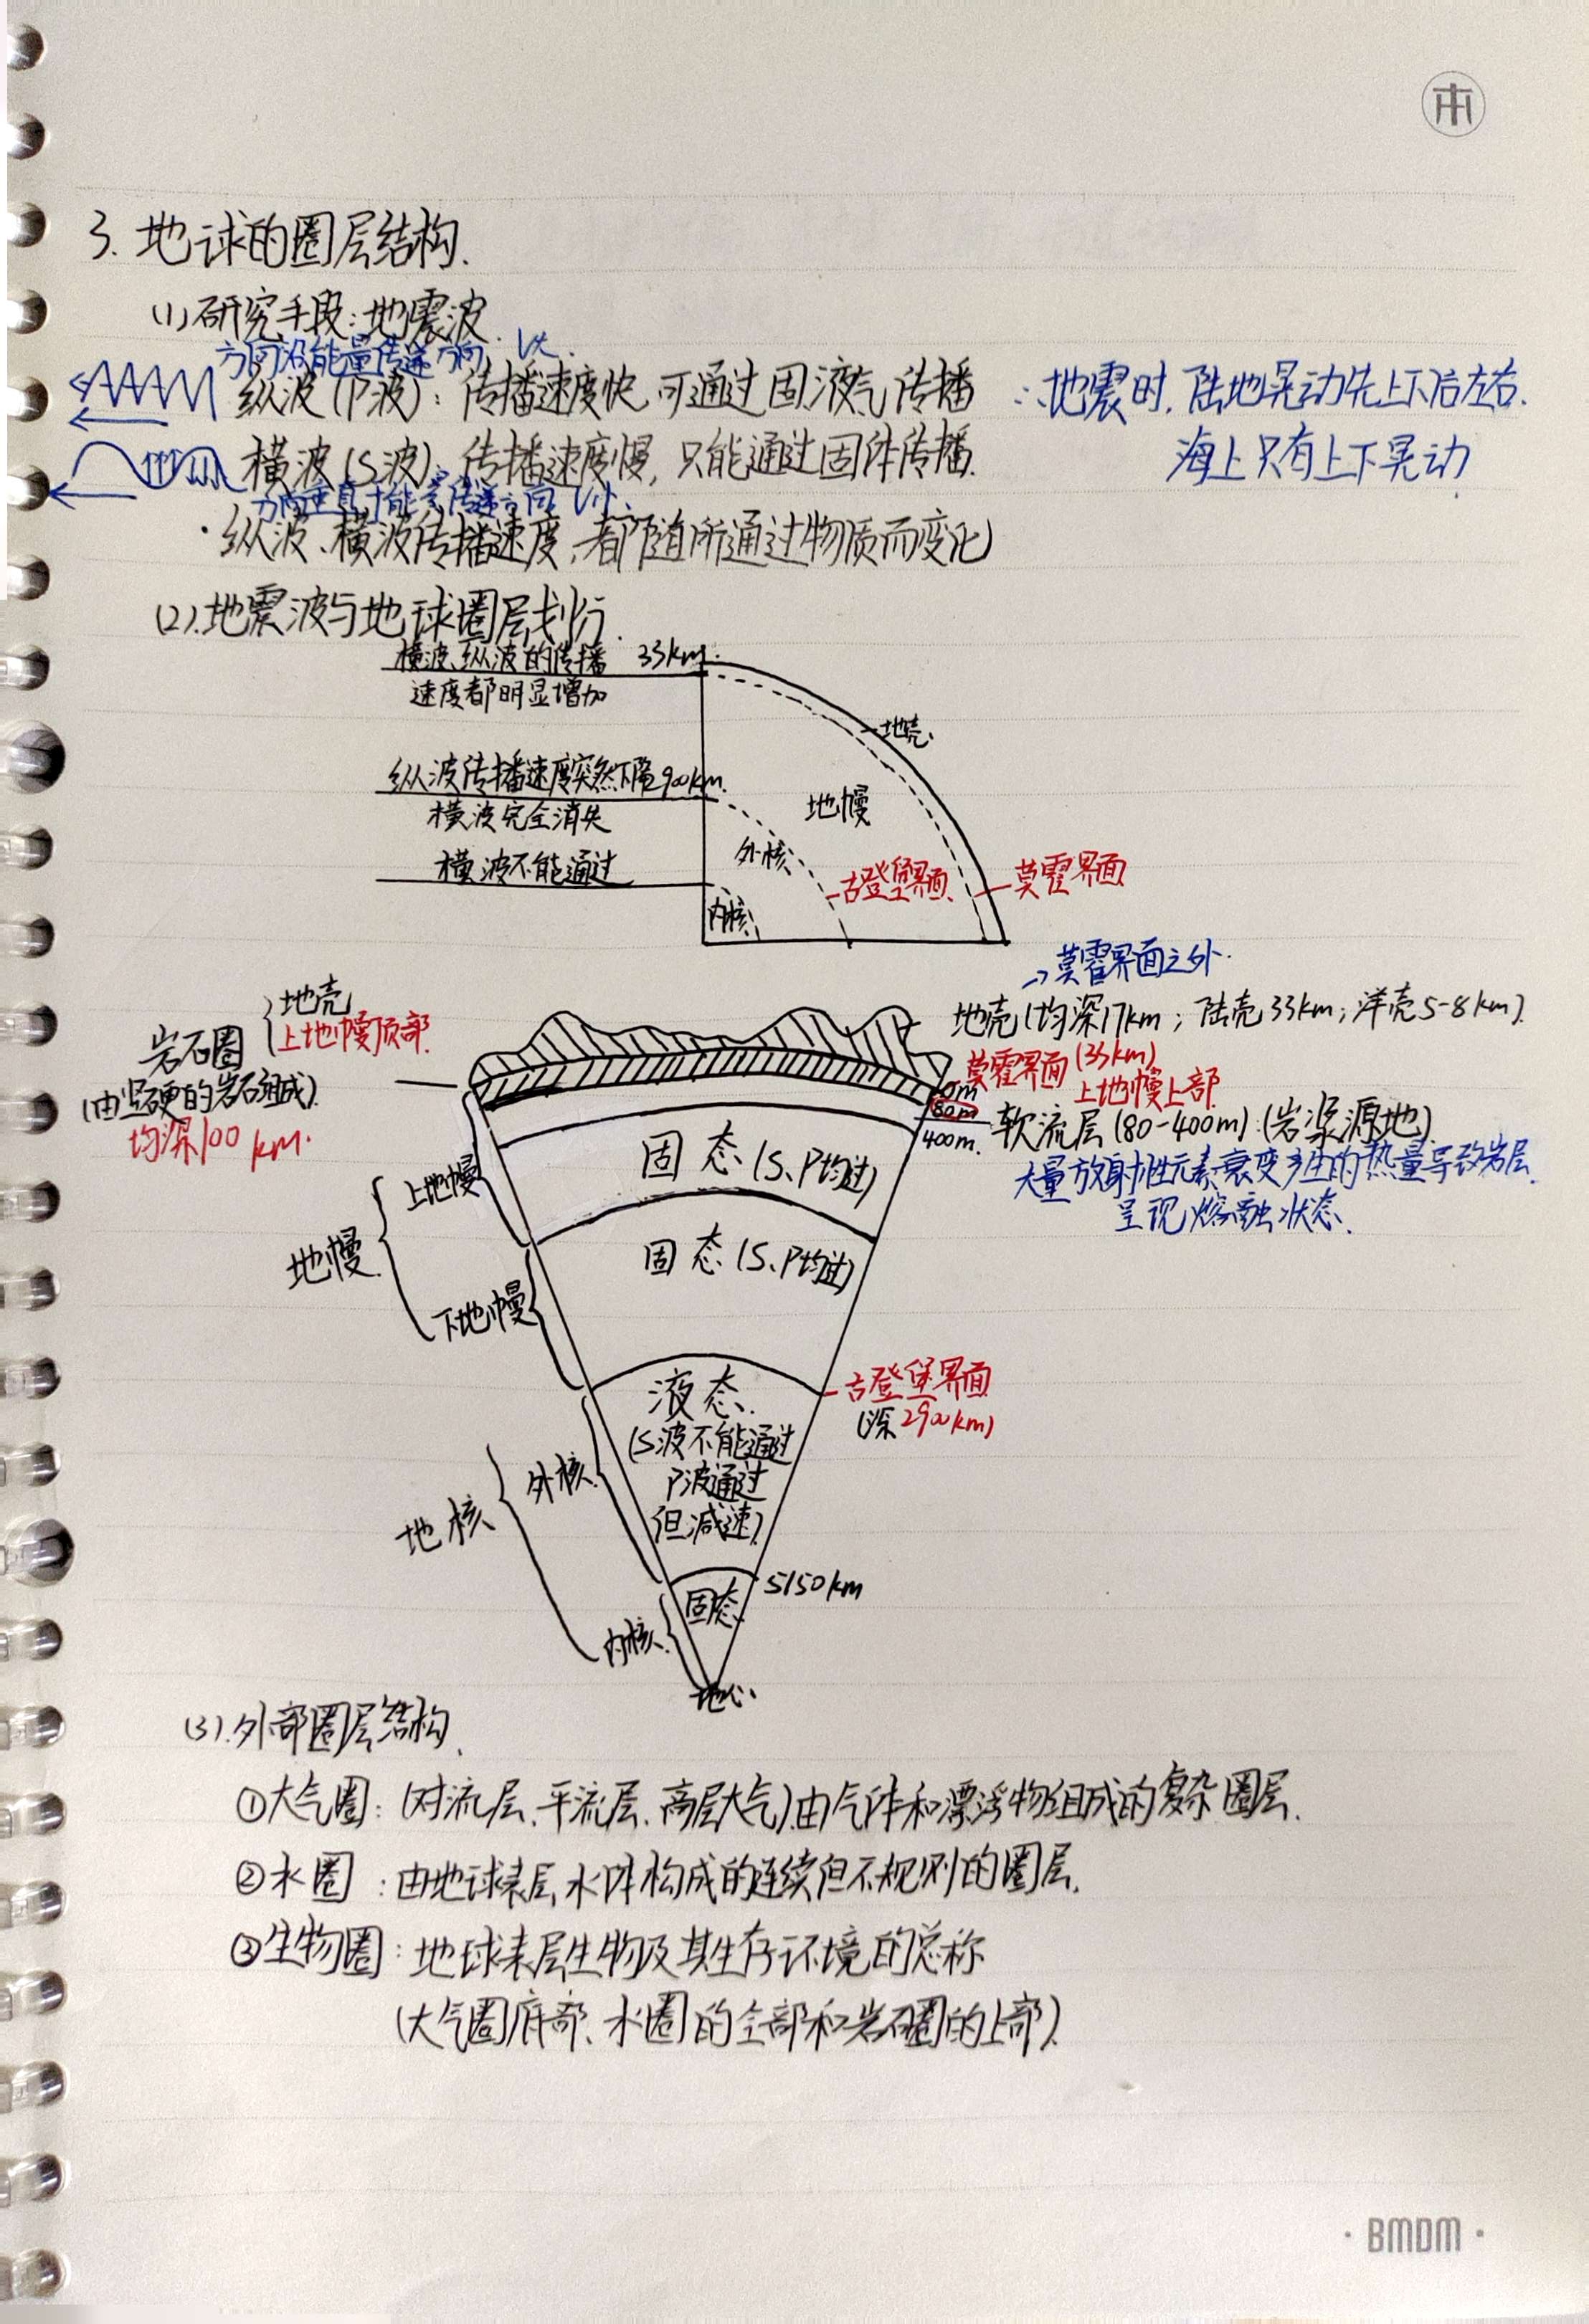 3. 地球的圈层结构.
(1) 研究手段:地震波
方向沿能量传递方向. V大.
纵波(P波):传播速度快,可通过固液气传播
∴地震时,陆地晃动先上下后左右.
横波(S波):传播速度慢,只能通过固体传播.
海上只有上下晃动
方向垂直于能量传递方向 V小.
·纵波、横波传播速度,都随所通过物质而变化
(2).地震波与地球圈层划分.
横波、纵波的传播 33km.
速度都明显增加
地壳.
纵波传播速度突然下降 2900km.
横波完全消失
地幔
外核.
横波不能通过
古登堡界面
莫霍界面
内核
→莫霍界面之外.
地壳(均深17km;陆壳33km;洋壳5-8km).
岩石圈
地壳
上地幔顶部.
(由坚硬的岩石组成).
均深100km.
莫霍界面(33km)
上地幔上部.
0m
80m
400m.
软流层(80-400m).(岩浆源地)
大量放射性元素衰变产生的热量导致岩层
呈现熔融状态.
固态(S、P均过)
上地幔
地幔
固态(S、P均过)
下地幔
古登堡界面
(深2900km)
液态.
(S波不能通过
P波通过
但减速)
外核
地核
5150km
固态
内核
地心
(3).外部圈层结构.
①大气圈:(对流层、平流层、高层大气).由气体和漂浮物组成的复杂圈层.
②水圈:由地球表层水体构成的连续但不规则的圈层.
③生物圈:地球表层生物及其生存环境的总称
(大气圈底部、水圈的全部和岩石圈的上部).
·BMDM·